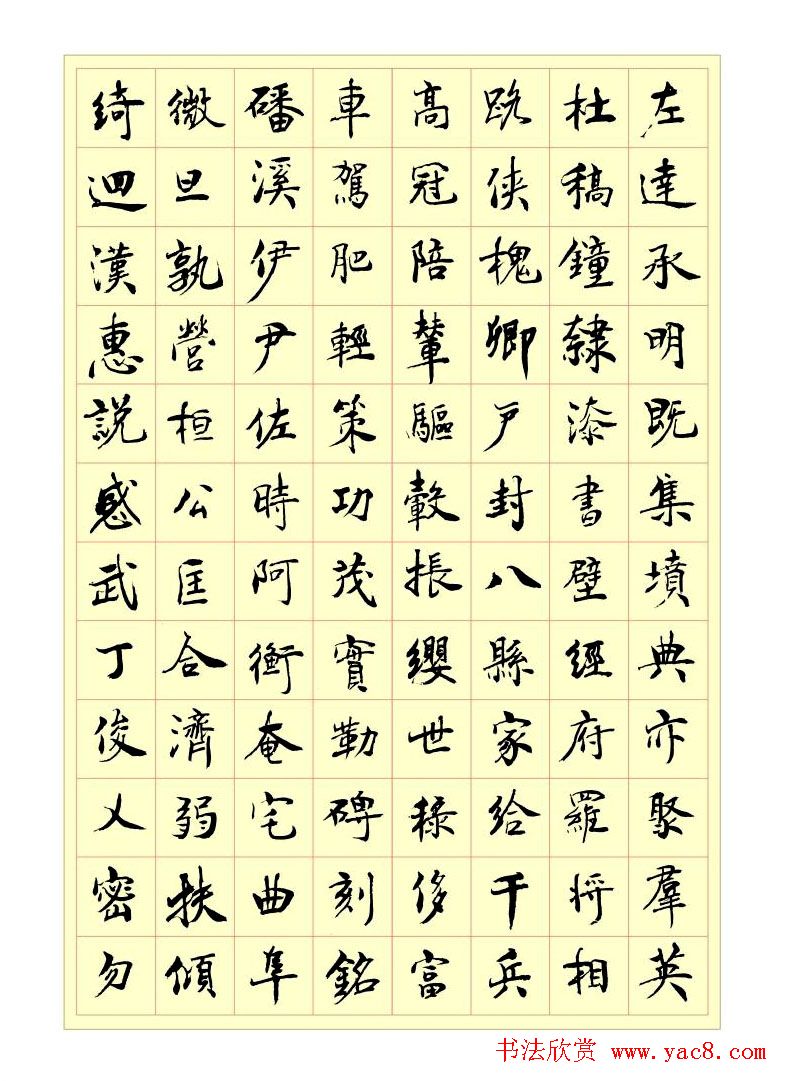 左達承明既集墳典亦聚羣英
杜稿鐘隸漆書壁經府羅将相
路俠槐卿户封八縣家給千兵
高冠陪輦驅轂振纓世祿侈富
車駕肥輕策功茂實勒碑刻銘
磻溪伊尹佐時阿衡奄宅曲阜
微旦孰營桓公匡合濟弱扶傾
綺迴漢惠說感武丁俊乂密勿
书法欣赏 www.yac8.com